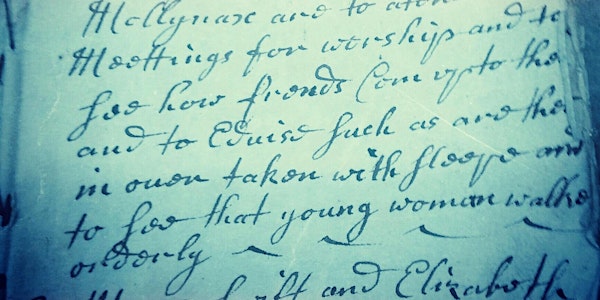 Mollynax and to aten
Meettings for worship and to
see how frends Com up to the
and to Eduise such as are ther
in ouer taken with sleepe and
to see that young woman walke
orderly
and Elizabeth